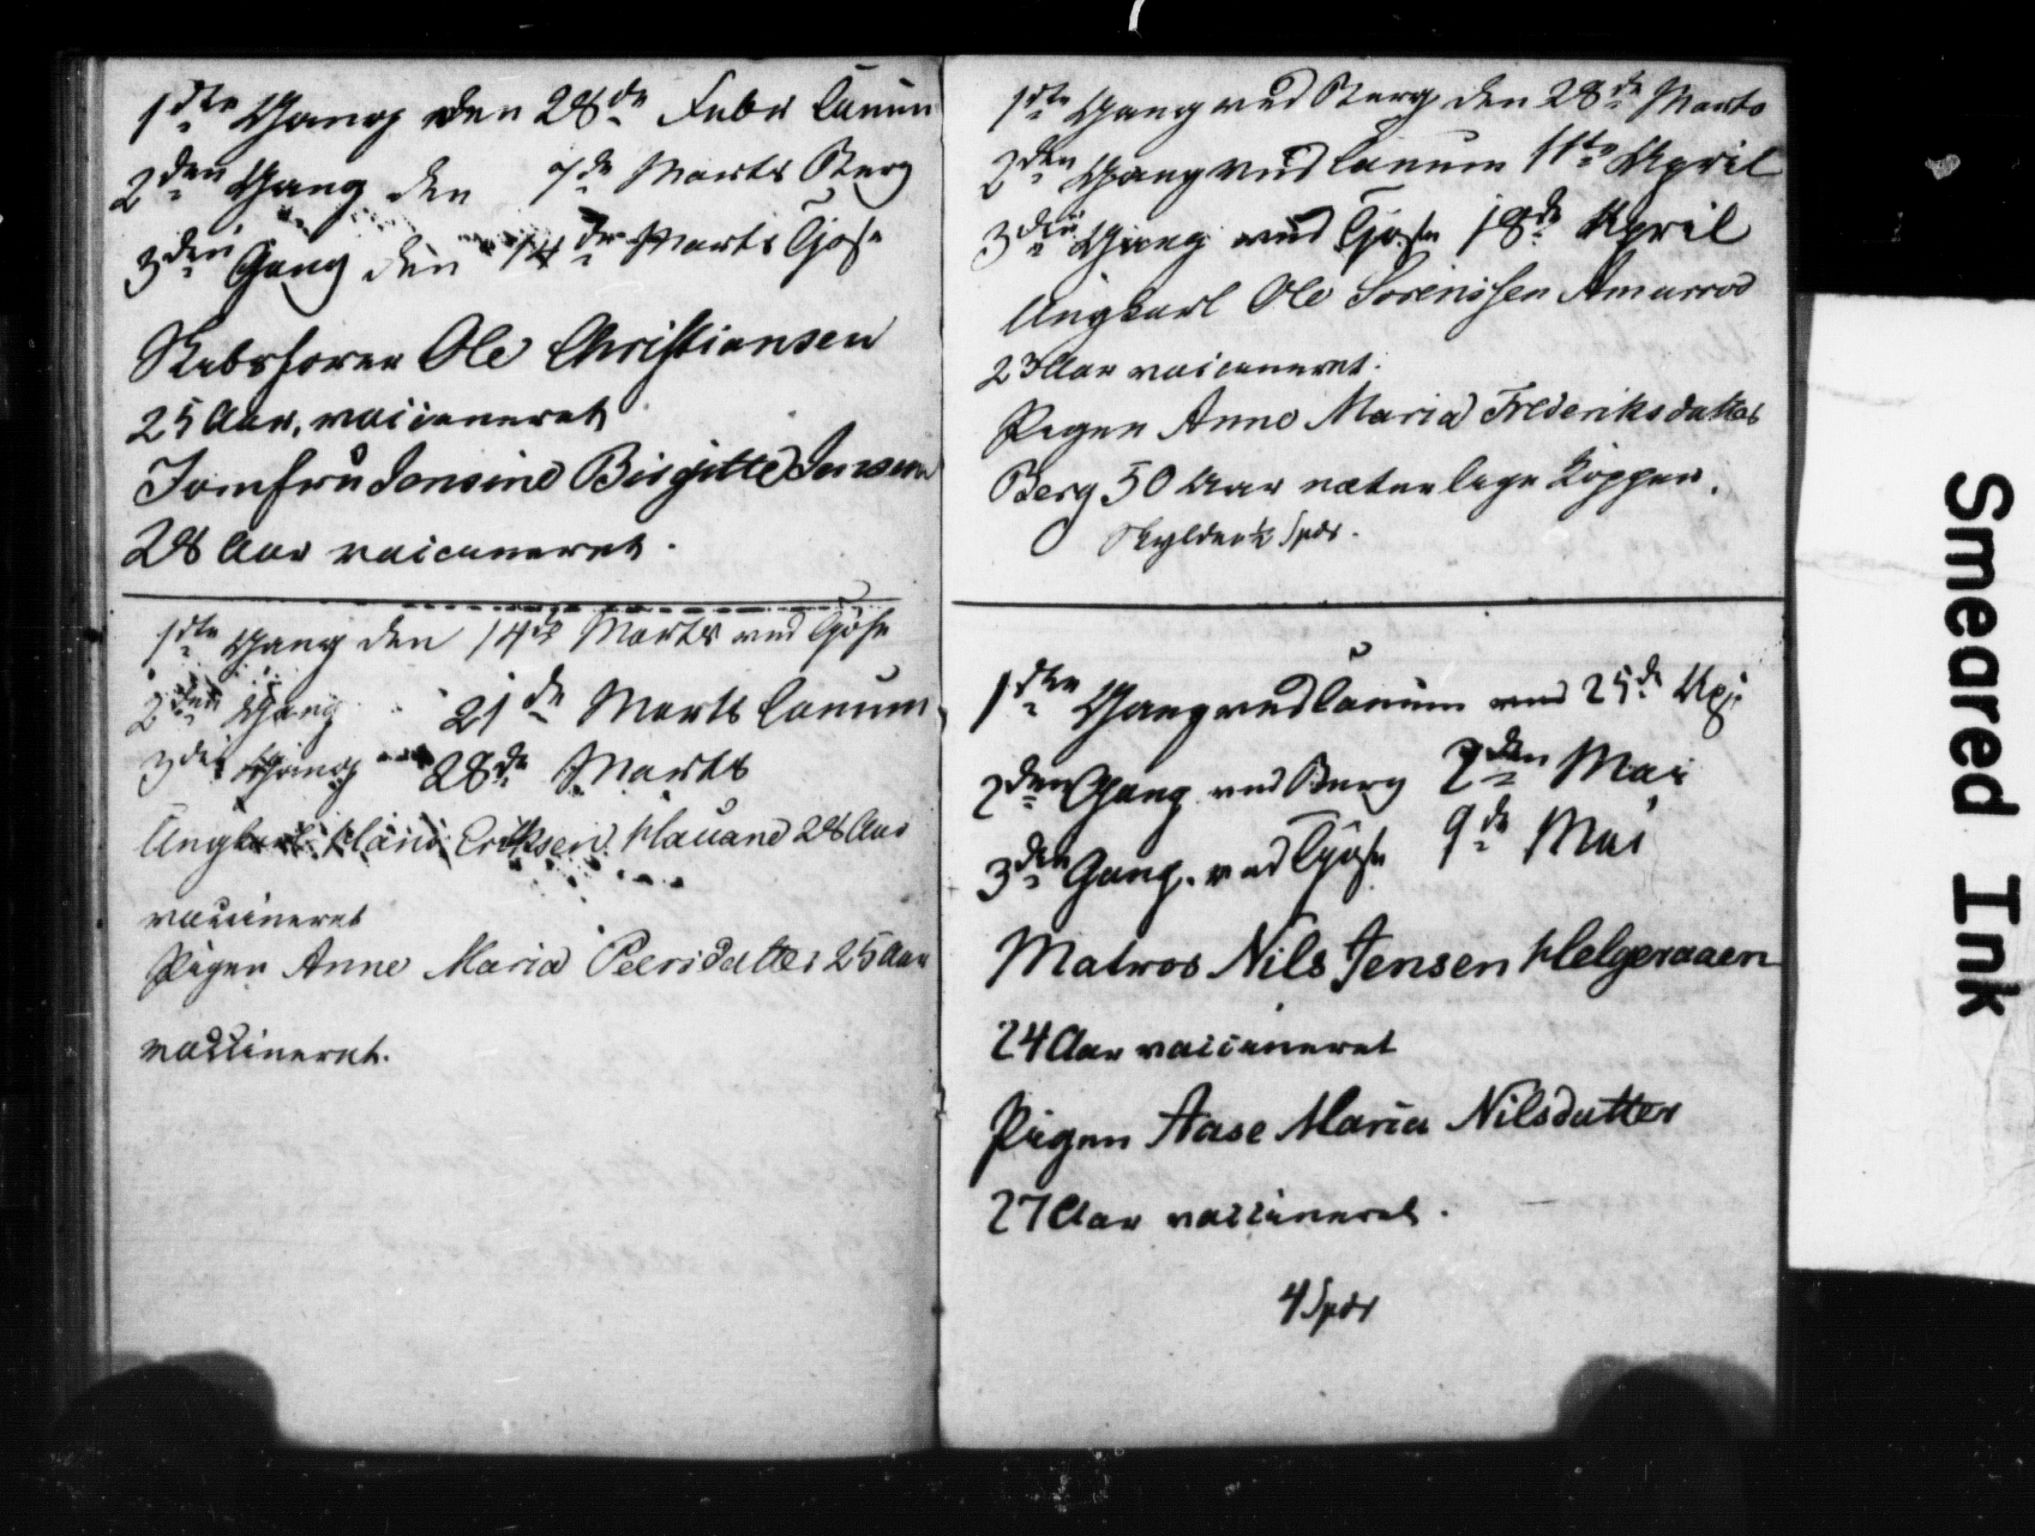 1ste Gang den 28de Febr Tanum
2den Gang den 7de Marts Berg
3die Gang den 14de Marts Tjøse
Skibsfører Ole Christiansen
25 Aar, vaccineret
Jomfru Jensine Birgitte Jensen
28 Aar vaccineret.
1ste Gang den 14de Marts ved Tjøse
2den Gang 21de Marts Tanum
3die Gang 28de Marts
Ungkarl Hans Eriksen Hauane 28 Aar
vaccineret
Pigen Anne Maria Peersdatter 25 Aar
vaccineret.
1ste Gang ved Berg den 28de Marts
2den Gang ved Tanum 11te April
3die Gang ved Tjøse 18de April
Ungkarl Ole Sørenssen Amarrød
23 Aar vaccineret.
Pigen Anne Maria Frederiksdatter
Berg 50 Aar naturlige Kopper.
Skylder ½ Spdr.
1ste Gang ved Tanum ved 25de Apr
2den Gang ved Berg 2den Mai
3die Gang. ved Tjøse 9de Mai
Matros Nils Jensen Helgeraaen
24 Aar vaccineret
Pigen Aase Maria Nilsdatter
27 Aar vaccineret.
4 Spdr
Smeared Ink